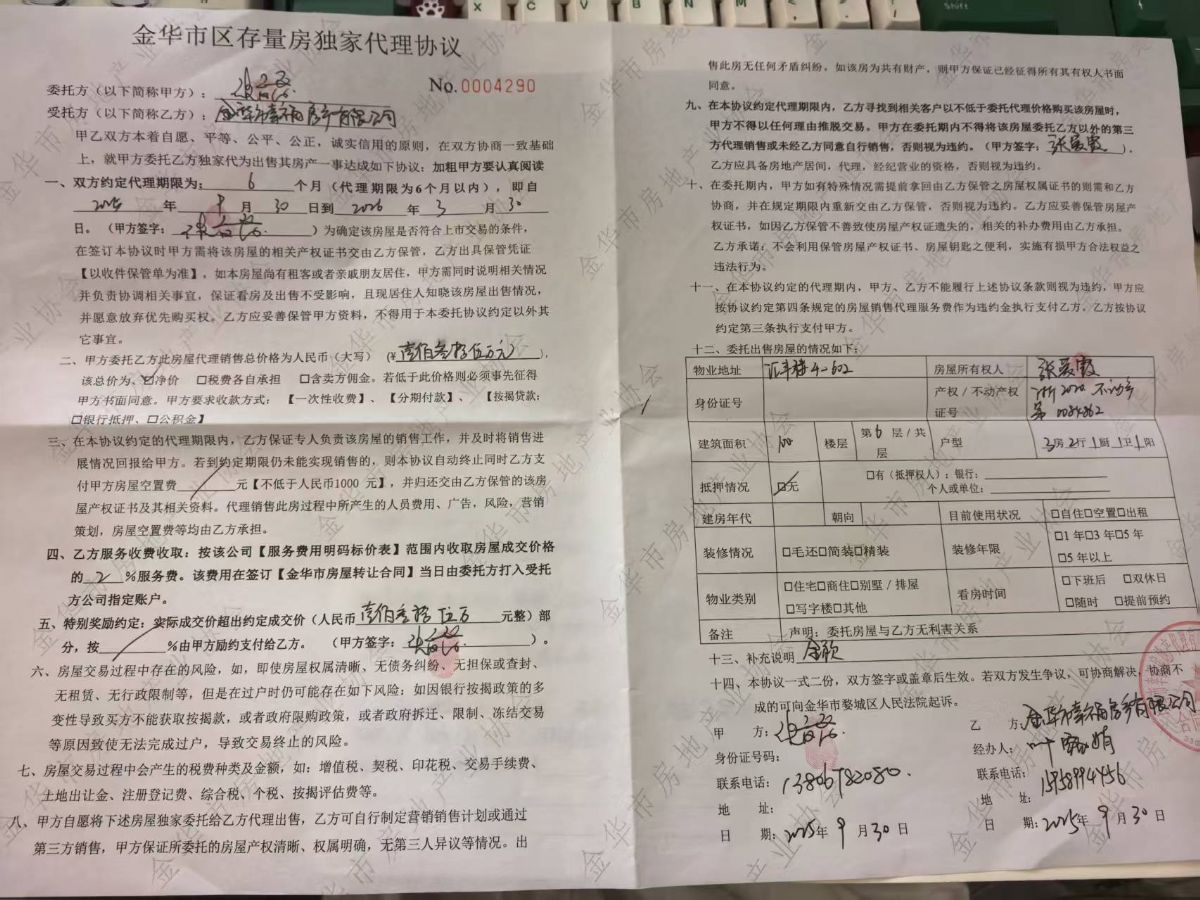 金华市区存量房独家代理协议
No.0004290
委托方（以下简称甲方）：
受托方（以下简称乙方）：金华市幸福房产有限公司
甲乙双方本着自愿、平等、公平、公正，诚实信用的原则，在双方协商一致基础
上，就甲方委托乙方独家代为出售其房产一事达成如下协议：加粗甲方要认真阅读
一、双方约定代理期限为：6个月（代理期限为6个月以内），即自
2025年9月30日到2026年3月30
日。（甲方签字：）为确定该房屋是否符合上市交易的条件，
在签订本协议时甲方需将该房屋的相关产权证书交由乙方保管，乙方出具保管凭证
【以收件保管单为准】，如本房屋尚有租客或者亲戚朋友居住，甲方需同时说明相关情况
并负责协调相关事宜，保证看房及出售不受影响，且现居住人知晓该房屋出售情况，
并愿意放弃优先购买权。乙方应妥善保管甲方资料，不得用于本委托协议约定以外其
它事宜。
二、甲方委托乙方此房屋代理销售总价格为人民币（大写）（¥壹佰叁拾伍万元），
该总价为、☑净价 □税费各自承担 □含卖方佣金。若低于此价格则必须事先征得
甲方书面同意。甲方要求收款方式：【一次性收费】、【分期付款】、【按揭贷款：
□银行抵押、□公积金】
三、在本协议约定的代理期限内，乙方保证专人负责该房屋的销售工作，并及时将销售进
展情况回报给甲方。若到约定期限仍未能实现销售的，则本协议自动终止同时乙方支
付甲方房屋空置费／元【不低于人民币1000 元】，并归还交由乙方保管的该房
屋产权证书及其相关资料。代理销售此房过程中所产生的人员费用、广告，风险，营销
策划，房屋空置费等均由乙方承担。
四、乙方服务收费收取：按该公司【服务费用明码标价表】范围内收取房屋成交价格
的2%服务费。该费用在签订【金华市房屋转让合同】当日由委托方打入受托
方公司指定账户。
五、特别奖励约定：实际成交价超出约定成交价（人民币壹佰叁拾伍万元整）部
分，按／%由甲方励约支付给乙方。（甲方签字：）。
六、房屋交易过程中存在的风险，如，即使房屋权属清晰、无债务纠纷、无担保或查封、
无租赁、无行政限制等，但是在过户时仍可能存在如下风险：如因银行按揭政策的多
变性导致买方不能获取按揭款，或者政府限购政策，或者政府拆迁、限制、冻结交易
等原因致使无法完成过户，导致交易终止的风险。
七、房屋交易过程中会产生的税费种类及金额，如：增值税、契税、印花税、交易手续费、
土地出让金、注册登记费、综合税、个税、按揭评估费等。
八、甲方自愿将下述房屋独家委托给乙方代理出售，乙方可自行制定营销销售计划或通过
第三方销售，甲方保证所委托的房屋产权清晰、权属明确，无第三人异议等情况。出
售此房无任何矛盾纠纷，如该房为共有财产，则甲方保证已经征得所有其有权人书面
同意。
九、在本协议约定代理期限内，乙方寻找到相关客户以不低于委托代理价格购买该房屋时，
甲方不得以任何理由推脱交易。甲方在委托期内不得将该房屋委托乙方以外的第三
方代理销售或未经乙方同意自行销售，否则视为违约。（甲方签字：张爱霞）．
乙方应具备房地产居间，代理，经纪营业的资格，否则视为违约。
十、在委托期内，甲方如有特殊情况需提前拿回由乙方保管之房屋权属证书的则需和乙方
协商，并在规定期限内重新交由乙方保管，否则视为违约。乙方应妥善保管房屋产
权证书，如因乙方保管不善致使房产权证遗失的，相关的补办费用由乙方承担。
乙方承诺：不会利用保管房屋产权证书、房屋钥匙之便利，实施有损甲方合法权益之
违法行为。
十一、在本协议约定的代理期内，甲方、乙方不能履行上述协议条款则视为违约，甲方应
按协议约定第四条规定的房屋销售代理服务费作为违约金执行支付乙方，乙方按协议
约定第三条执行支付甲方。
十二、委托出售房屋的情况如下：
物业地址 4-602 房屋所有权人 张爱霞
身份证号 产权／不动产证号 浙2020 不动产第0084862
建筑面积 100 楼层 第6层/共层 户型 3房2厅1厨1卫1阳
抵押情况 ☑无 □有（抵押权人）：银行：
个人或单位：
建房年代 朝向 目前使用状况 □自住□空置□出租
装修情况 □毛还□简装□精装 装修年限 □1年□3年□5年
□5年以上
物业类别 □住宅□商住□别墅／排屋 看房时间 □下班后 □双休日
□写字楼□其他 □随时 □提前预约
备注 声明：委托房屋与乙方无利害关系
十三、补充说明
十四、本协议一式二份，双方签字或盖章后生效。若双方发生争议，可协商解决，协商不
成的可向金华市婺城区人民法院起诉。
甲 方：
身份证号码：
联系电话：13806782080.
地 址：
日 期：2025年9月30日
乙 方：金华市幸福房产有限公司
经办人：叶
联系电话：15958994456
地 址：
日 期：2025年9月30日